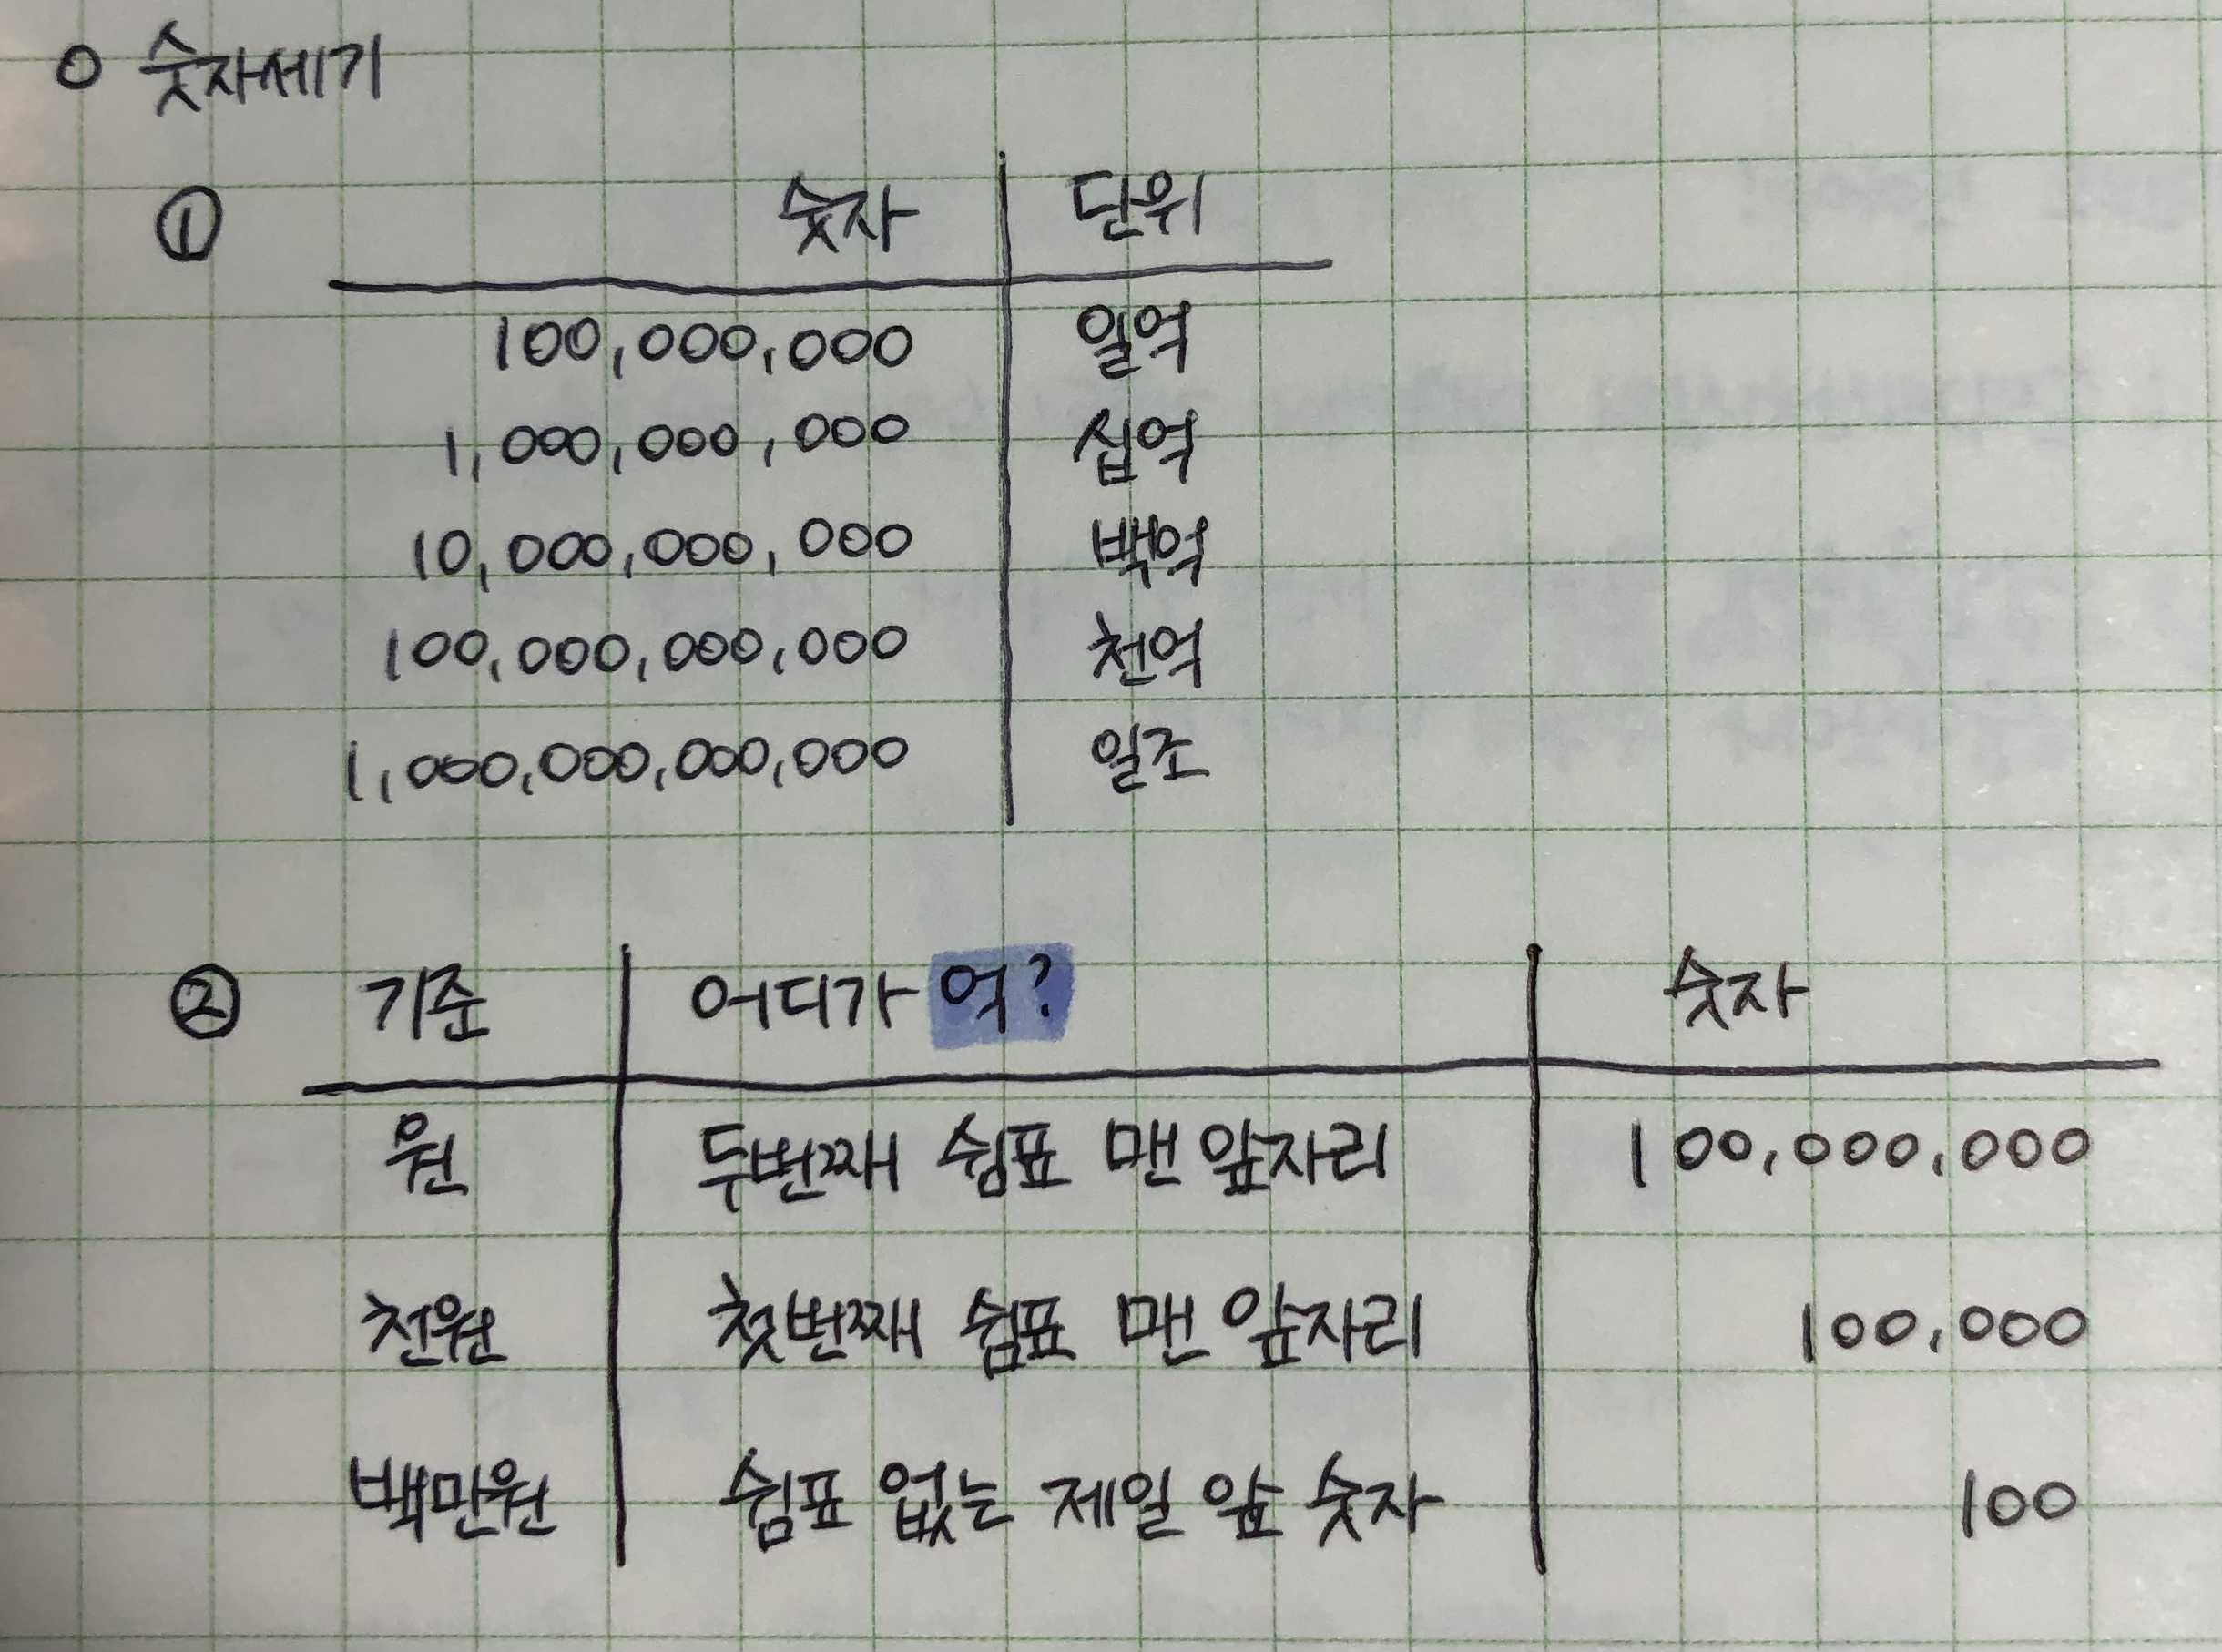 ○ 숫자세기
① 숫자 단위
100,000,000 일억
1,000,000,000 십억
10,000,000,000 백억
100,000,000,000 천억
1,000,000,000,000 일조
② 기준 어디가 억? 숫자
원 두번째 쉼표 맨 앞자리 100,000,000
천원 첫번째 쉼표 맨 앞자리 100,000
백만원 쉼표 없는 제일 앞 숫자 100